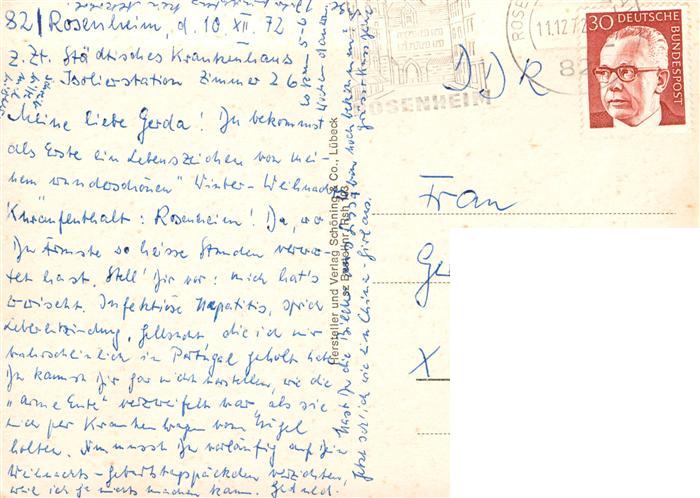 82 / Rosenheim, d. 10. XII. 72
z. Zt. Städtisches Krankenhaus
Isolierstation Zimmer 26
Meine liebe Gerda! Du bekommst
als Erste ein Lebenszeichen von mei-
nem "wunderschönen" Winter-Weihnachts
aufenthalt: Rosenheim! Da, wo
Du Ärmste so heisse Stunden verwar-
tet hast. Stell' Dir vor: mich hat's
erwischt. Infektiöse Hepatitis, sprich
Leberentzündung, Gelbsucht, die ich mir
wahrscheinlich in Portugal geholt hab
Du kannst Dir gar nicht vorstellen, wie die
"arme Ente" verzweifelt war, als sie
mich per Krankenwagen vom
holten. Nun musst Du vorläufig auf Dein
Weihnachts-Geburtstagspäckchen verzichten,
weil ich ja nichts machen kann. Geduld.
Hast Du die Bilder noch bekommen?
Jetzt seh ich wie ein Chinese aus.
Hersteller und Verlag Schöning & Co., Lübeck
Bestellnr. Rsh 103
ROSENHEIM
11.12.72
82
30 DEUTSCHE BUNDESPOST
DDR
Frau
Ge
X